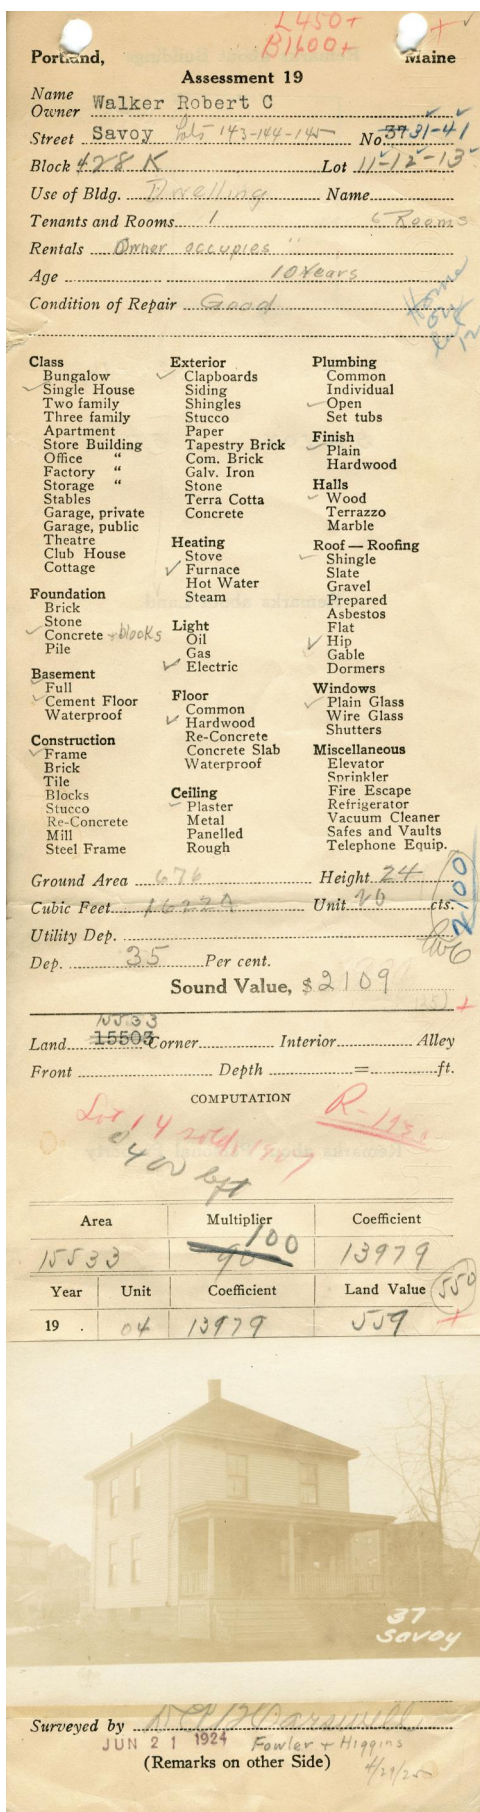 L450+
B1600+
+
Portland, Maine
Assessment 19
Name
Owner Walker Robert C
Street Savoy Lots 143-144-145 No. 37 31-41
Block 428 K Lot 11-12-13
Use of Bldg. Dwelling Name
Tenants and Rooms 1 6 Rooms
Rentals Owner occupies "
Age 10 Years
Condition of Repair Good
Class
Bungalow
Single House
Two family
Three family
Apartment
Store Building
Office "
Factory "
Storage "
Stables
Garage, private
Garage, public
Theatre
Club House
Cottage
Foundation
Brick
Stone
Concrete + blocks
Pile
Basement
Full
Cement Floor
Waterproof
Construction
Frame
Brick
Tile
Blocks
Stucco
Re-Concrete
Mill
Steel Frame
Exterior
Clapboards
Siding
Shingles
Stucco
Paper
Tapestry Brick
Com. Brick
Galv. Iron
Stone
Terra Cotta
Concrete
Heating
Stove
Furnace
Hot Water
Steam
Light
Oil
Gas
Electric
Floor
Common
Hardwood
Re-Concrete
Concrete Slab
Waterproof
Ceiling
Plaster
Metal
Panelled
Rough
Plumbing
Common
Individual
Open
Set tubs
Finish
Plain
Hardwood
Halls
Wood
Terrazzo
Marble
Roof — Roofing
Shingle
Slate
Gravel
Prepared
Asbestos
Flat
Hip
Gable
Dormers
Windows
Plain Glass
Wire Glass
Shutters
Miscellaneous
Elevator
Sprinkler
Fire Escape
Refrigerator
Vacuum Cleaner
Safes and Vaults
Telephone Equip.
Ground Area 676 Height 24
Cubic Feet 16224 Unit 20 cts.
2100
Utility Dep.
Dep. 35 Per cent.
Sound Value, $ 2109
+
15533
Land 15503 Corner Interior Alley
Front Depth = ft.
COMPUTATION
Lot 14 sold 1927
R-1930
0400 left
Area Multiplier Coefficient
15533 90 100 13979
Year Unit Coefficient Land Value 550
19 . 04 13979 559 +
37
Savoy
Surveyed by
JUN 21 1924 Fowler + Higgins
(Remarks on other Side) 4/29/25